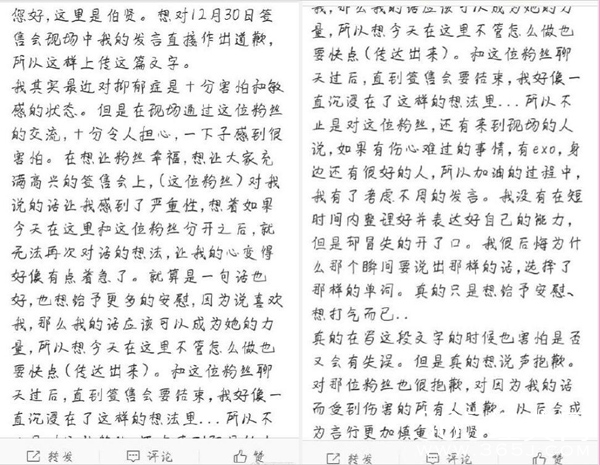 您好，这里是伯贤。想对12月30日签
售会现场中我的发言直接作出道歉，
所以这样上传这篇文字。
我其实最近对抑郁症是十分害怕和敏
感的状态。但是在现场通过这位粉丝
的交流，十分令人担心，一下子感到很
害怕。在想让粉丝幸福，想让大家充
满高兴的签售会上，(这位粉丝)对我
说的话让我感到了严重性，想着如果
今天在这里和这位粉丝分开之后，就
无法再次对话的想法，让我的心变得
好像有点着急了。就算是一句话也
好，也想给予更多的安慰，因为说喜欢
我，那么我的话应该可以成为她的力
量，所以想今天在这里不管怎么做也
要快点(传达出来)。和这位粉丝聊
天过后，直到签售会要结束，我好像一
直沉浸在了这样的想法里...所以不
转发
评论
赞
我，那么我的话应该可以成为她的力
量，所以想今天在这里不管怎么做也
要快点(传达出来)。和这位粉丝聊
天过后，直到签售会要结束，我好像一
直沉浸在了这样的想法里...所以不
止是对这位粉丝，还有来到现场的人
说，如果有伤心难过的事情，有exo，身
边还有很好的人，所以加油的过程中，
我有了考虑不周的发言。我没有在短
时间内整理好并表达好自己的能力，
但是却冒失的开了口。我很后悔为什
么那个瞬间要说出那样的话，选择了
那样的单词。真的只是想给予安慰、
想打气而已..
真的在写这段文字的时候也害怕是否
又会有失误。但是真的想说声抱歉。
对那位粉丝也很抱歉，对因为我的话
而受到伤害的所有人道歉。以后会成
为言行更加慎重的伯贤。
转发
评论
赞